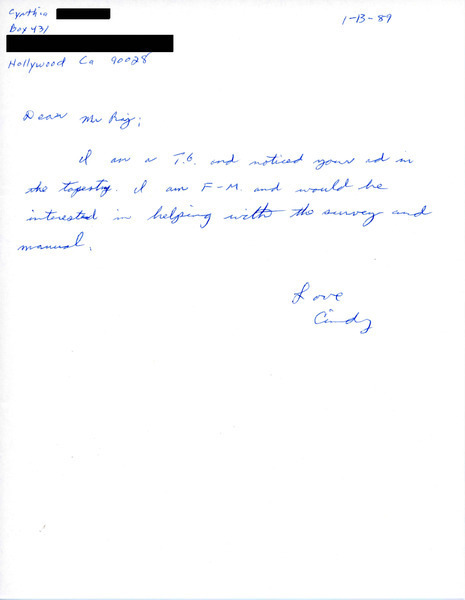 Cynthia
Box 431
Hollywood Ca 90028
1-13-89
Dear Mr Rig;
I am a T.G. and noticed your ad in
the tapesty. I am F-M. and would be
interested in helping with the survey and
manual.
Love
Cindy